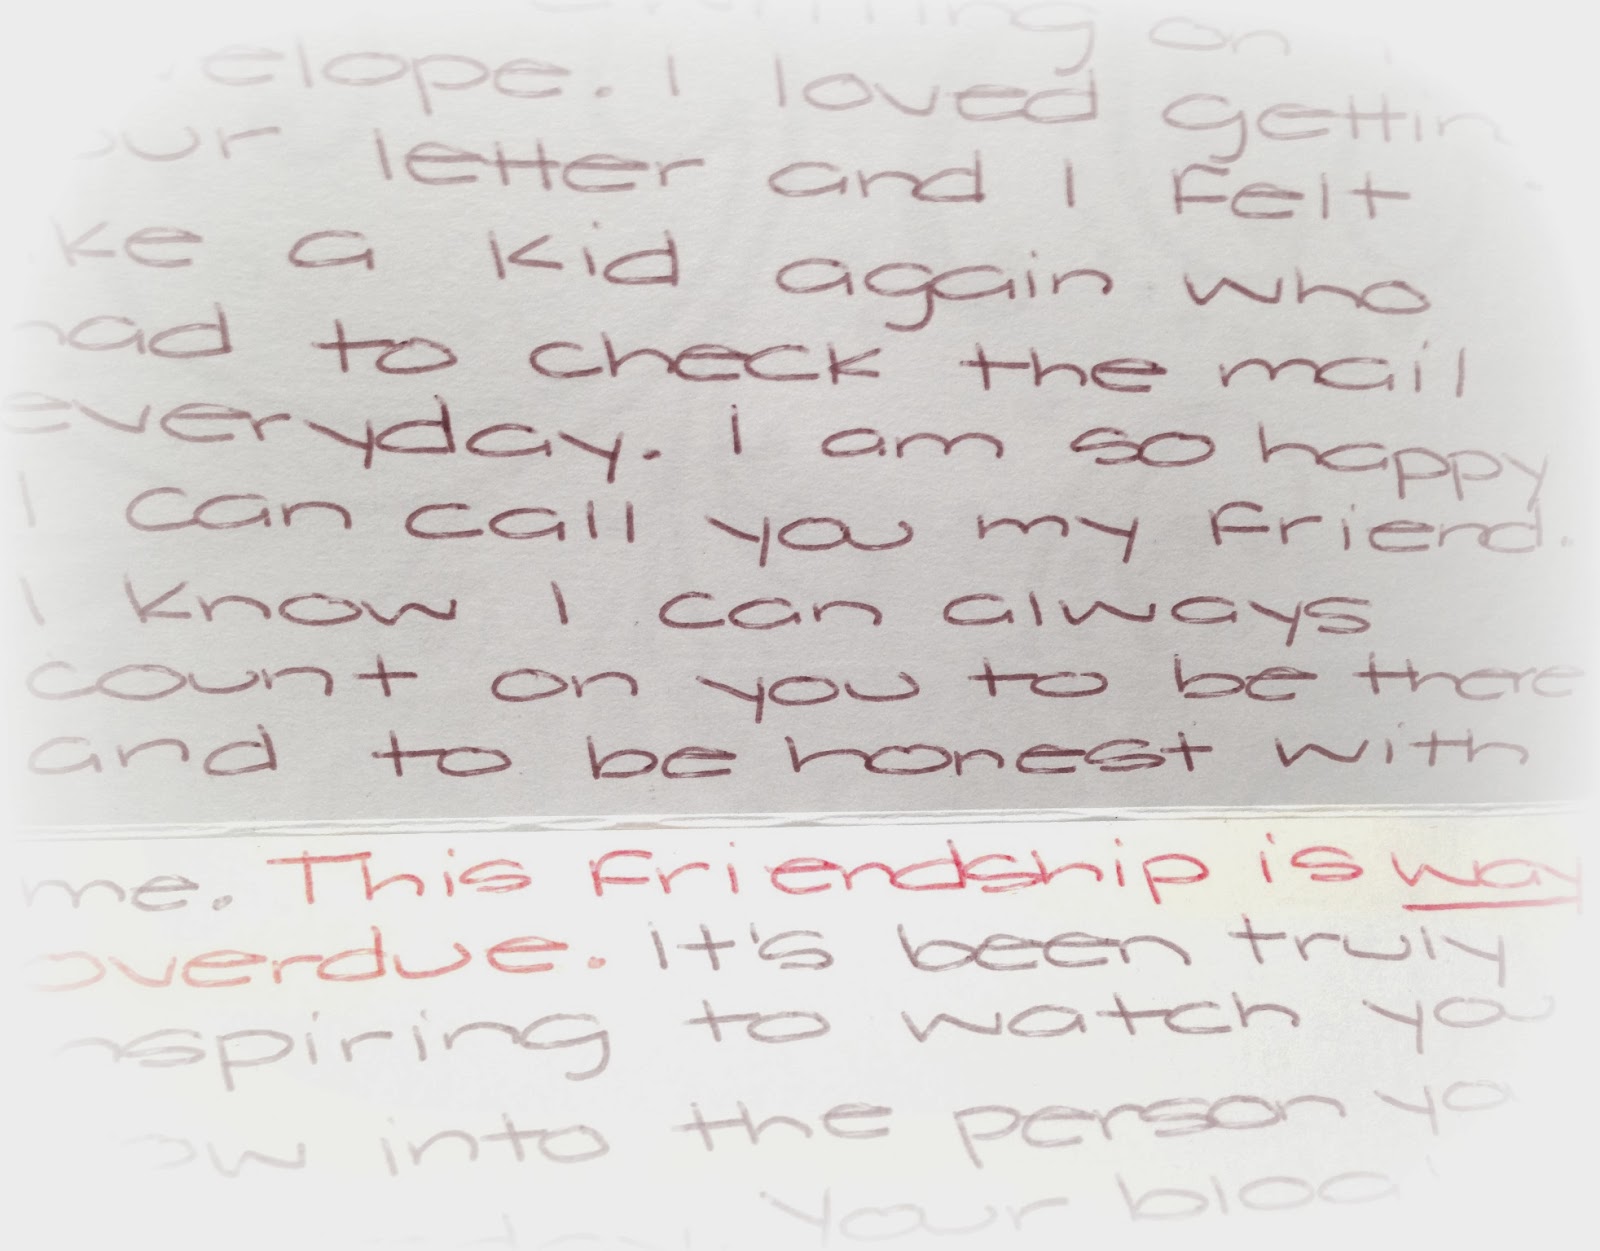 on
elope. I loved gettin
our letter and I felt
ke a kid again who
had to check the mail
everyday. I am so happy
I can call you my friend.
I know I can always
count on you to be there
and to be honest with
me. This friendship is way
overdue. It's been truly
nspiring to watch you
ow into the person yo
Your bloo